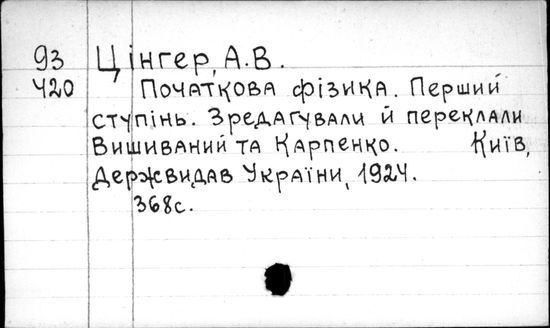 93 Цінгер, А.В.
420 Початкова фізика. Перший
ступінь. Зредагували й переклали
Вишиваний та Карпенко. Київ,
Держвидав України, 1924.
368с.